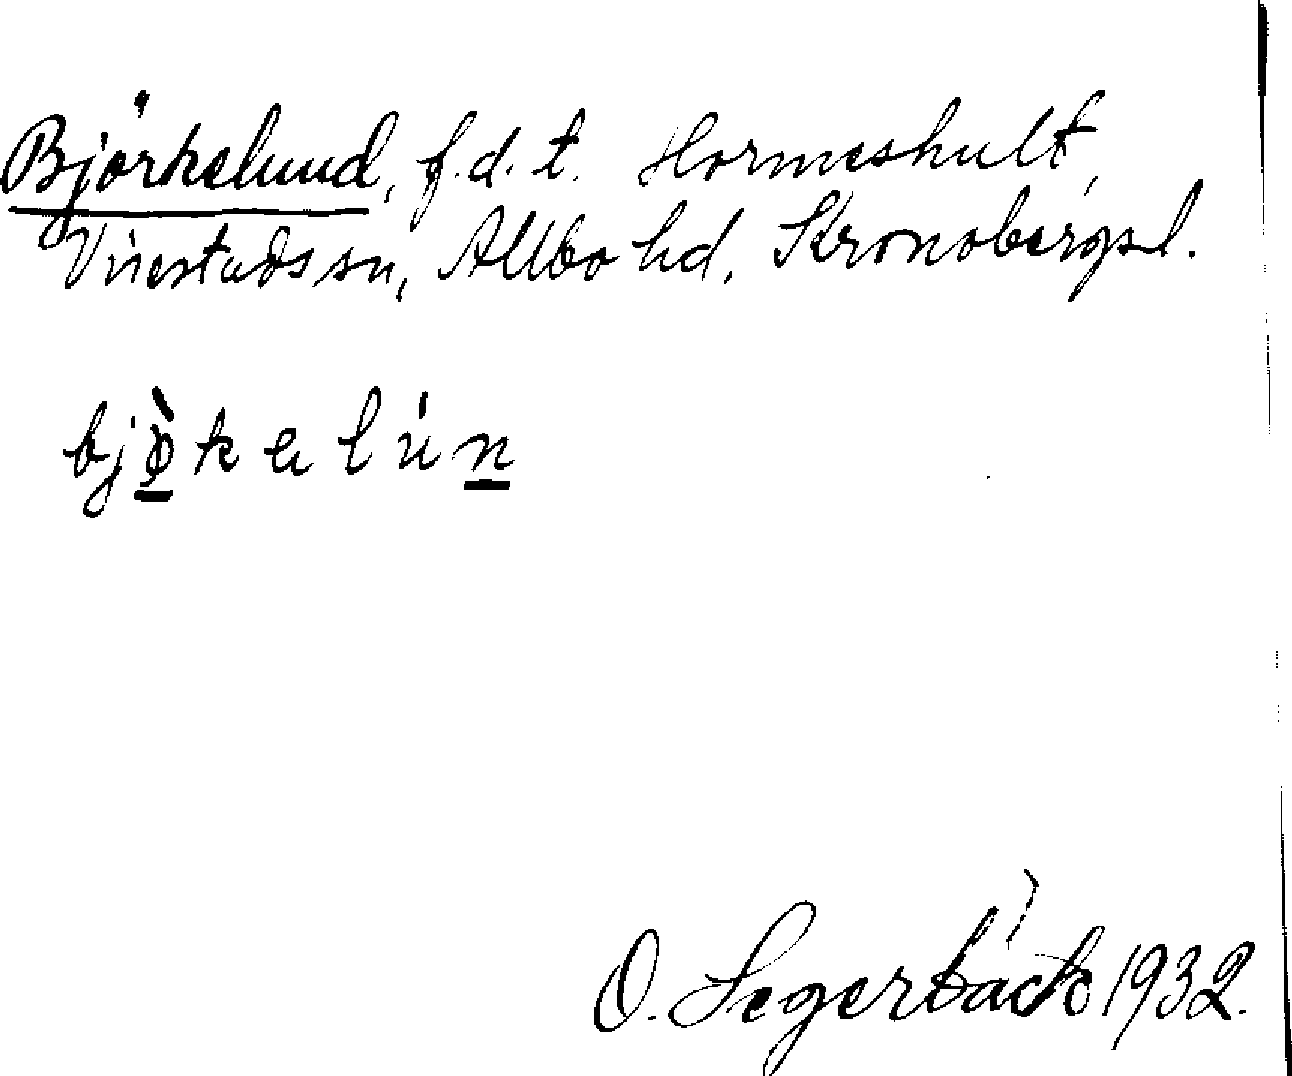 Björkelund, f.d.t. Hormeshult,
Virestads sn, Allbo hd, Kronobergs l.
bjø̀kelún
O. Segerbäck 1932.